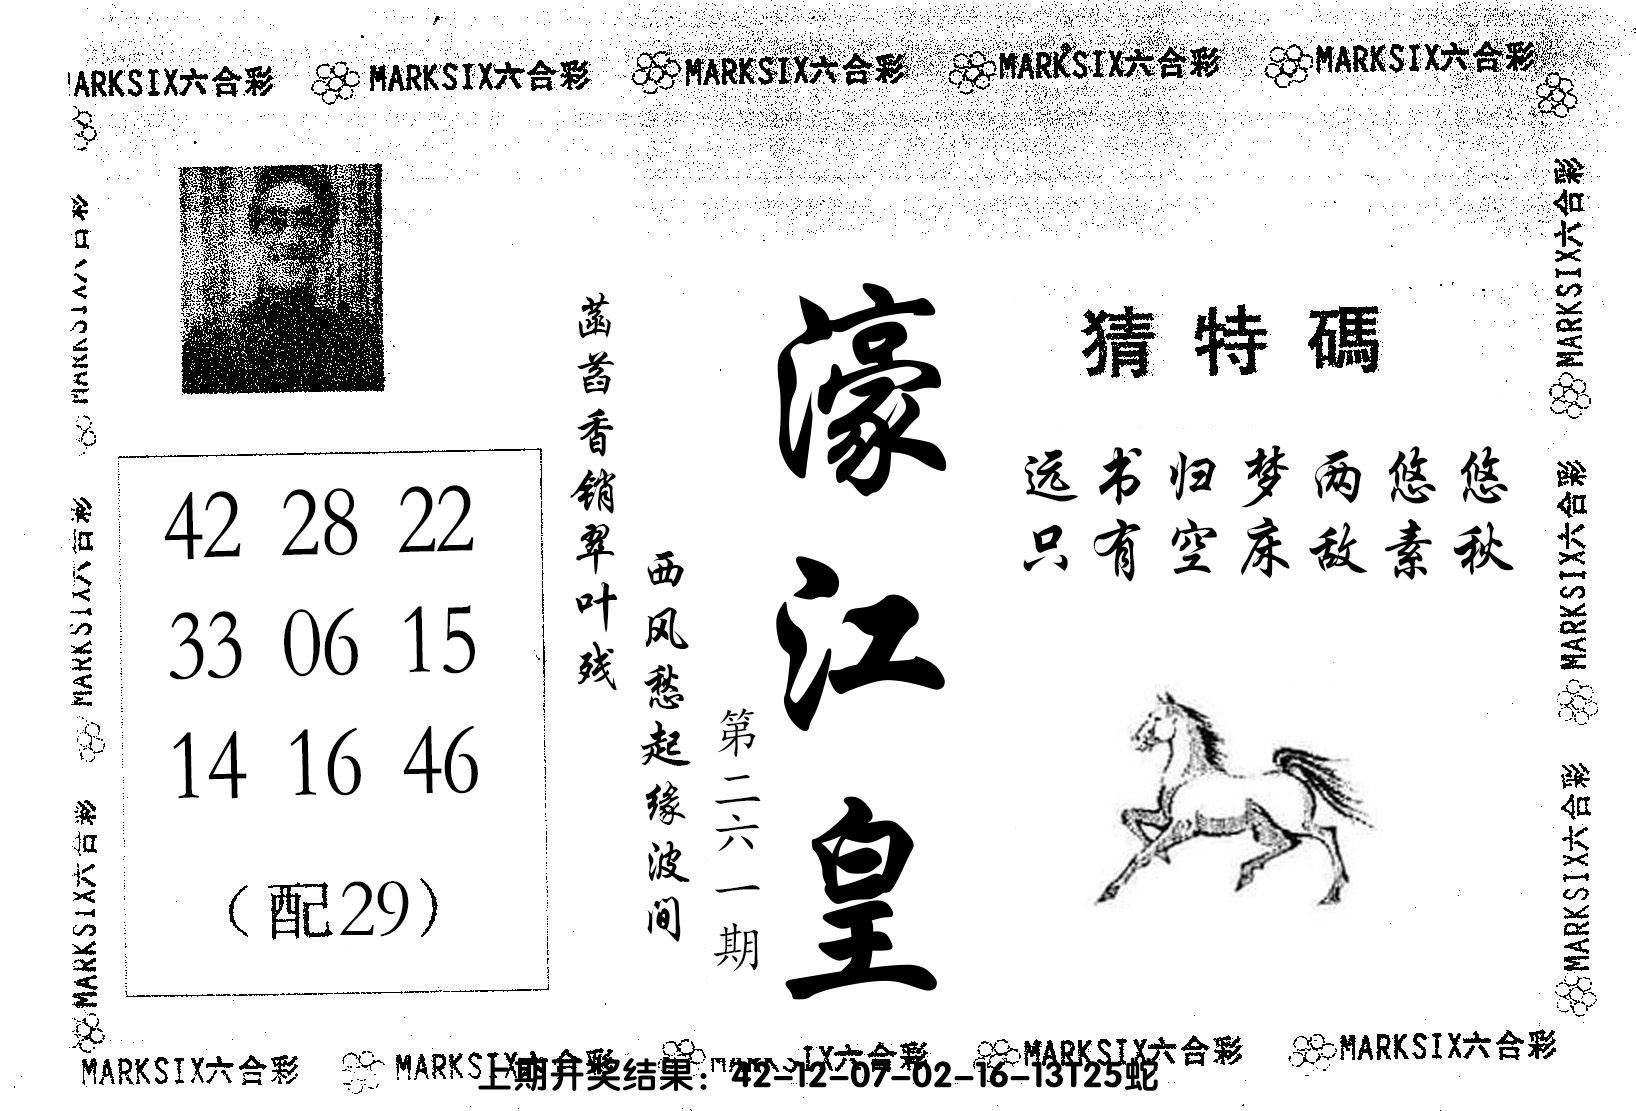 MARKSIX六合彩 MARKSIX六合彩 MARKSIX六合彩 MARKSIX六合彩 MARKSIX六合彩
MARKSIX六合彩
MARKSIX六合彩
MARKSIX六合彩
濠江皇
第二六一期
猜特碼
远书归梦两悠悠
只有空床敌素秋
菡萏香销翠叶残
西风愁起缘波间
42 28 22
33 06 15
14 16 46
(配29)
MARKSIX六合彩
MARKSIX六合彩
MARKSIX六合彩
MARKSIX六合彩 MARKSIX六合彩 MARKSIX六合彩 MARKSIX六合彩
上期开奖结果：42-12-07-02-16-13T25蛇